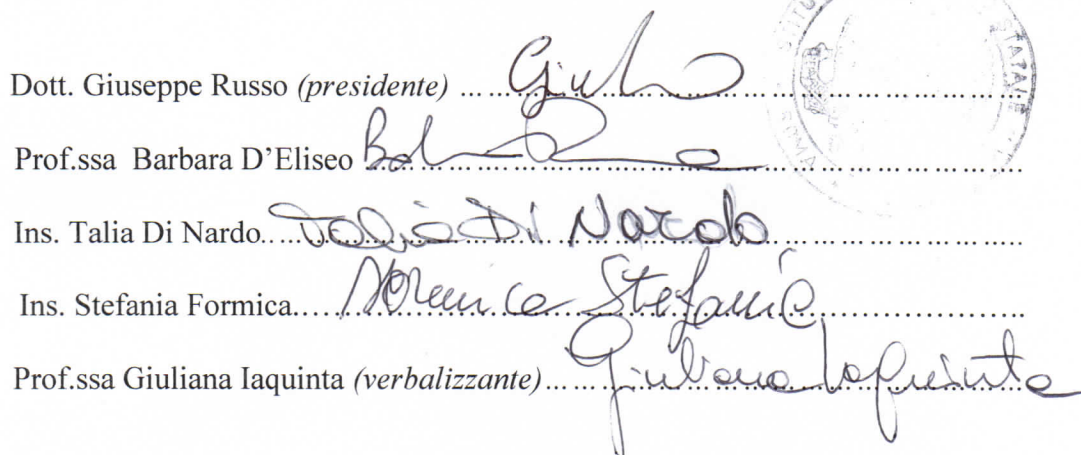 Dott. Giuseppe Russo (presidente) ................................................
STATALE
ROMA
Prof.ssa Barbara D'Eliseo ................................................
Ins. Talia Di Nardo....Talia Di Nardo................
Ins. Stefania Formica.....Formica Stefania................
Prof.ssa Giuliana Iaquinta (verbalizzante)......Giuliana Iaquinta